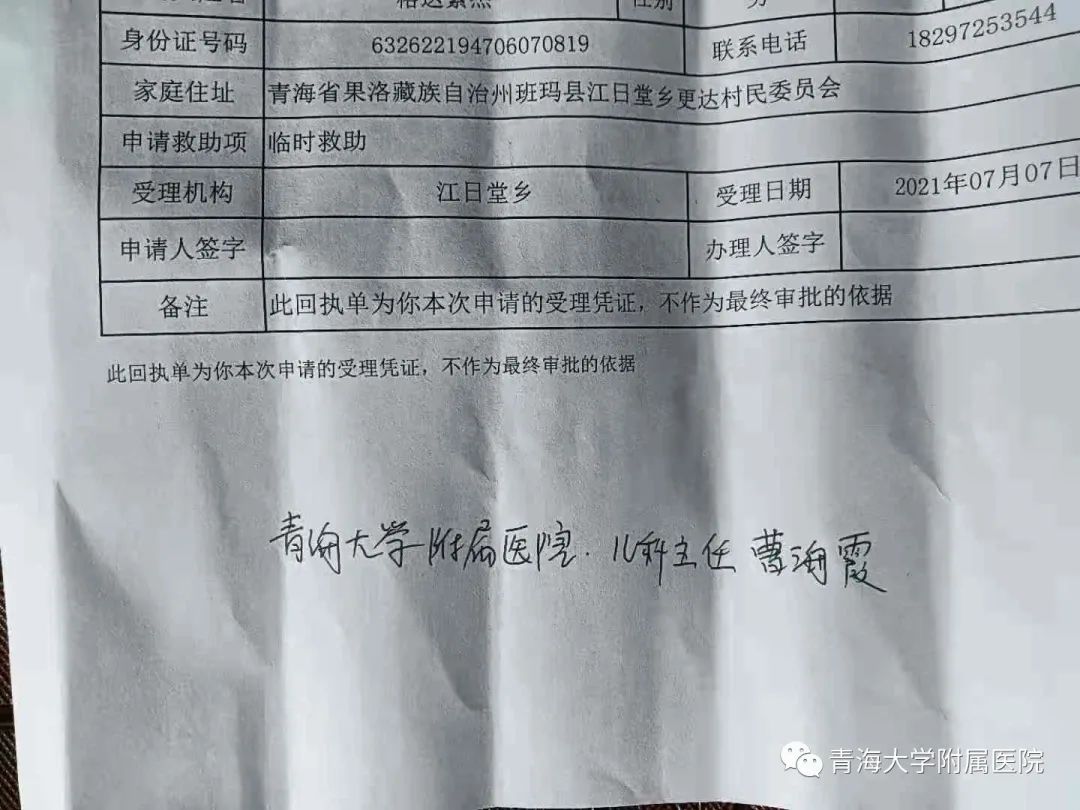 身份证号码 632622194706070819 联系电话 18297253544
家庭住址 青海省果洛藏族自治州班玛县江日堂乡更达村民委员会
申请救助项 临时救助
受理机构 江日堂乡 受理日期 2021年07月07日
申请人签字 办理人签字
备注 此回执单为你本次申请的受理凭证，不作为最终审批的依据
此回执单为你本次申请的受理凭证，不作为最终审批的依据
青海大学附属医院.儿科主任 曹海霞
青海大学附属医院